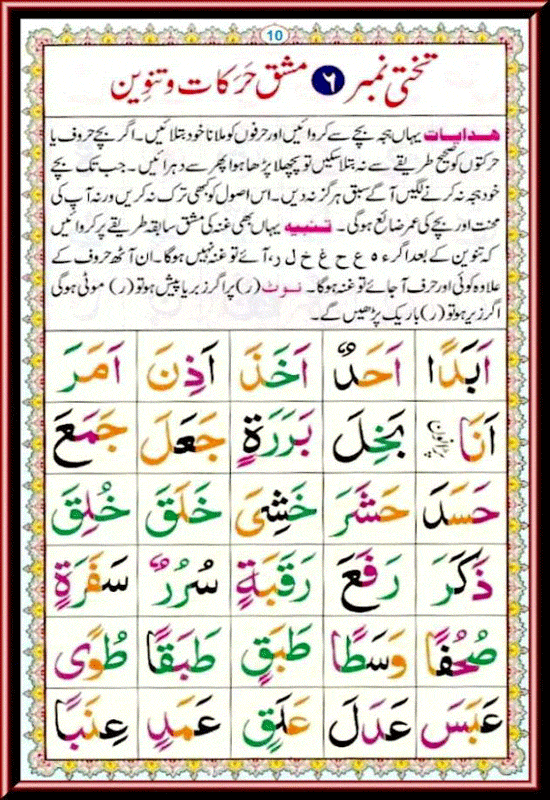 10
تختی نمبر ۶ مشق حرکات و تنوین
ھدایات یہاں ہجہ بچے سے کروائیں اور حرفوں کو ملانا خود بتلائیں۔ اگر بچے حروف یا
حرکتوں کو صحیح طریقے سے نہ بتلا سکیں تو پچھلا پڑھا ہوا پھر سے دہرائیں۔ جب تک بچے
خود ہجہ نہ کرنے لگیں آگے سبق ہرگز نہ دیں۔ اس اصول کو کبھی ترک نہ کریں ورنہ آپ کی
محنت اور بچے کی عمر ضائع ہوگی۔ تنبیہ یہاں بھی غنہ کی مشق سابقہ طریقے پر کروائیں
کہ تنوین کے بعد اگر ء ہ ع ح غ خ ل ر، آئے تو غنہ نہیں ہوگا۔ ان آٹھ حروف کے
علاوہ کوئی اور حرف آجائے تو غنہ ہوگا۔ نوٹ (ر) پر اگر زبر یا پیش ہو تو (ر) موٹی ہوگی
اگر زیر ہو تو (ر) باریک پڑھیں گے۔
اَبَدًا اَحَدٌ اَخَذَ اَذِنَ اَمَرَ
اَنَا بَخِلَ بَرَرَةٍ جَعَلَ جَمَعَ
حَسَدَ حَشَرَ خَشِیَ خَلَقَ خُلِقَ
ذَكَرَ رَفَعَ رَقَبَةٍ سُرُرٌ سَفَرَةٍ
صُحُفًا وَسَطًا طَبَقٍ طَبَقًا طُوًی
عَبَسَ عَدَلَ عَلَقٍ عَمَدٍ عِنَبًا